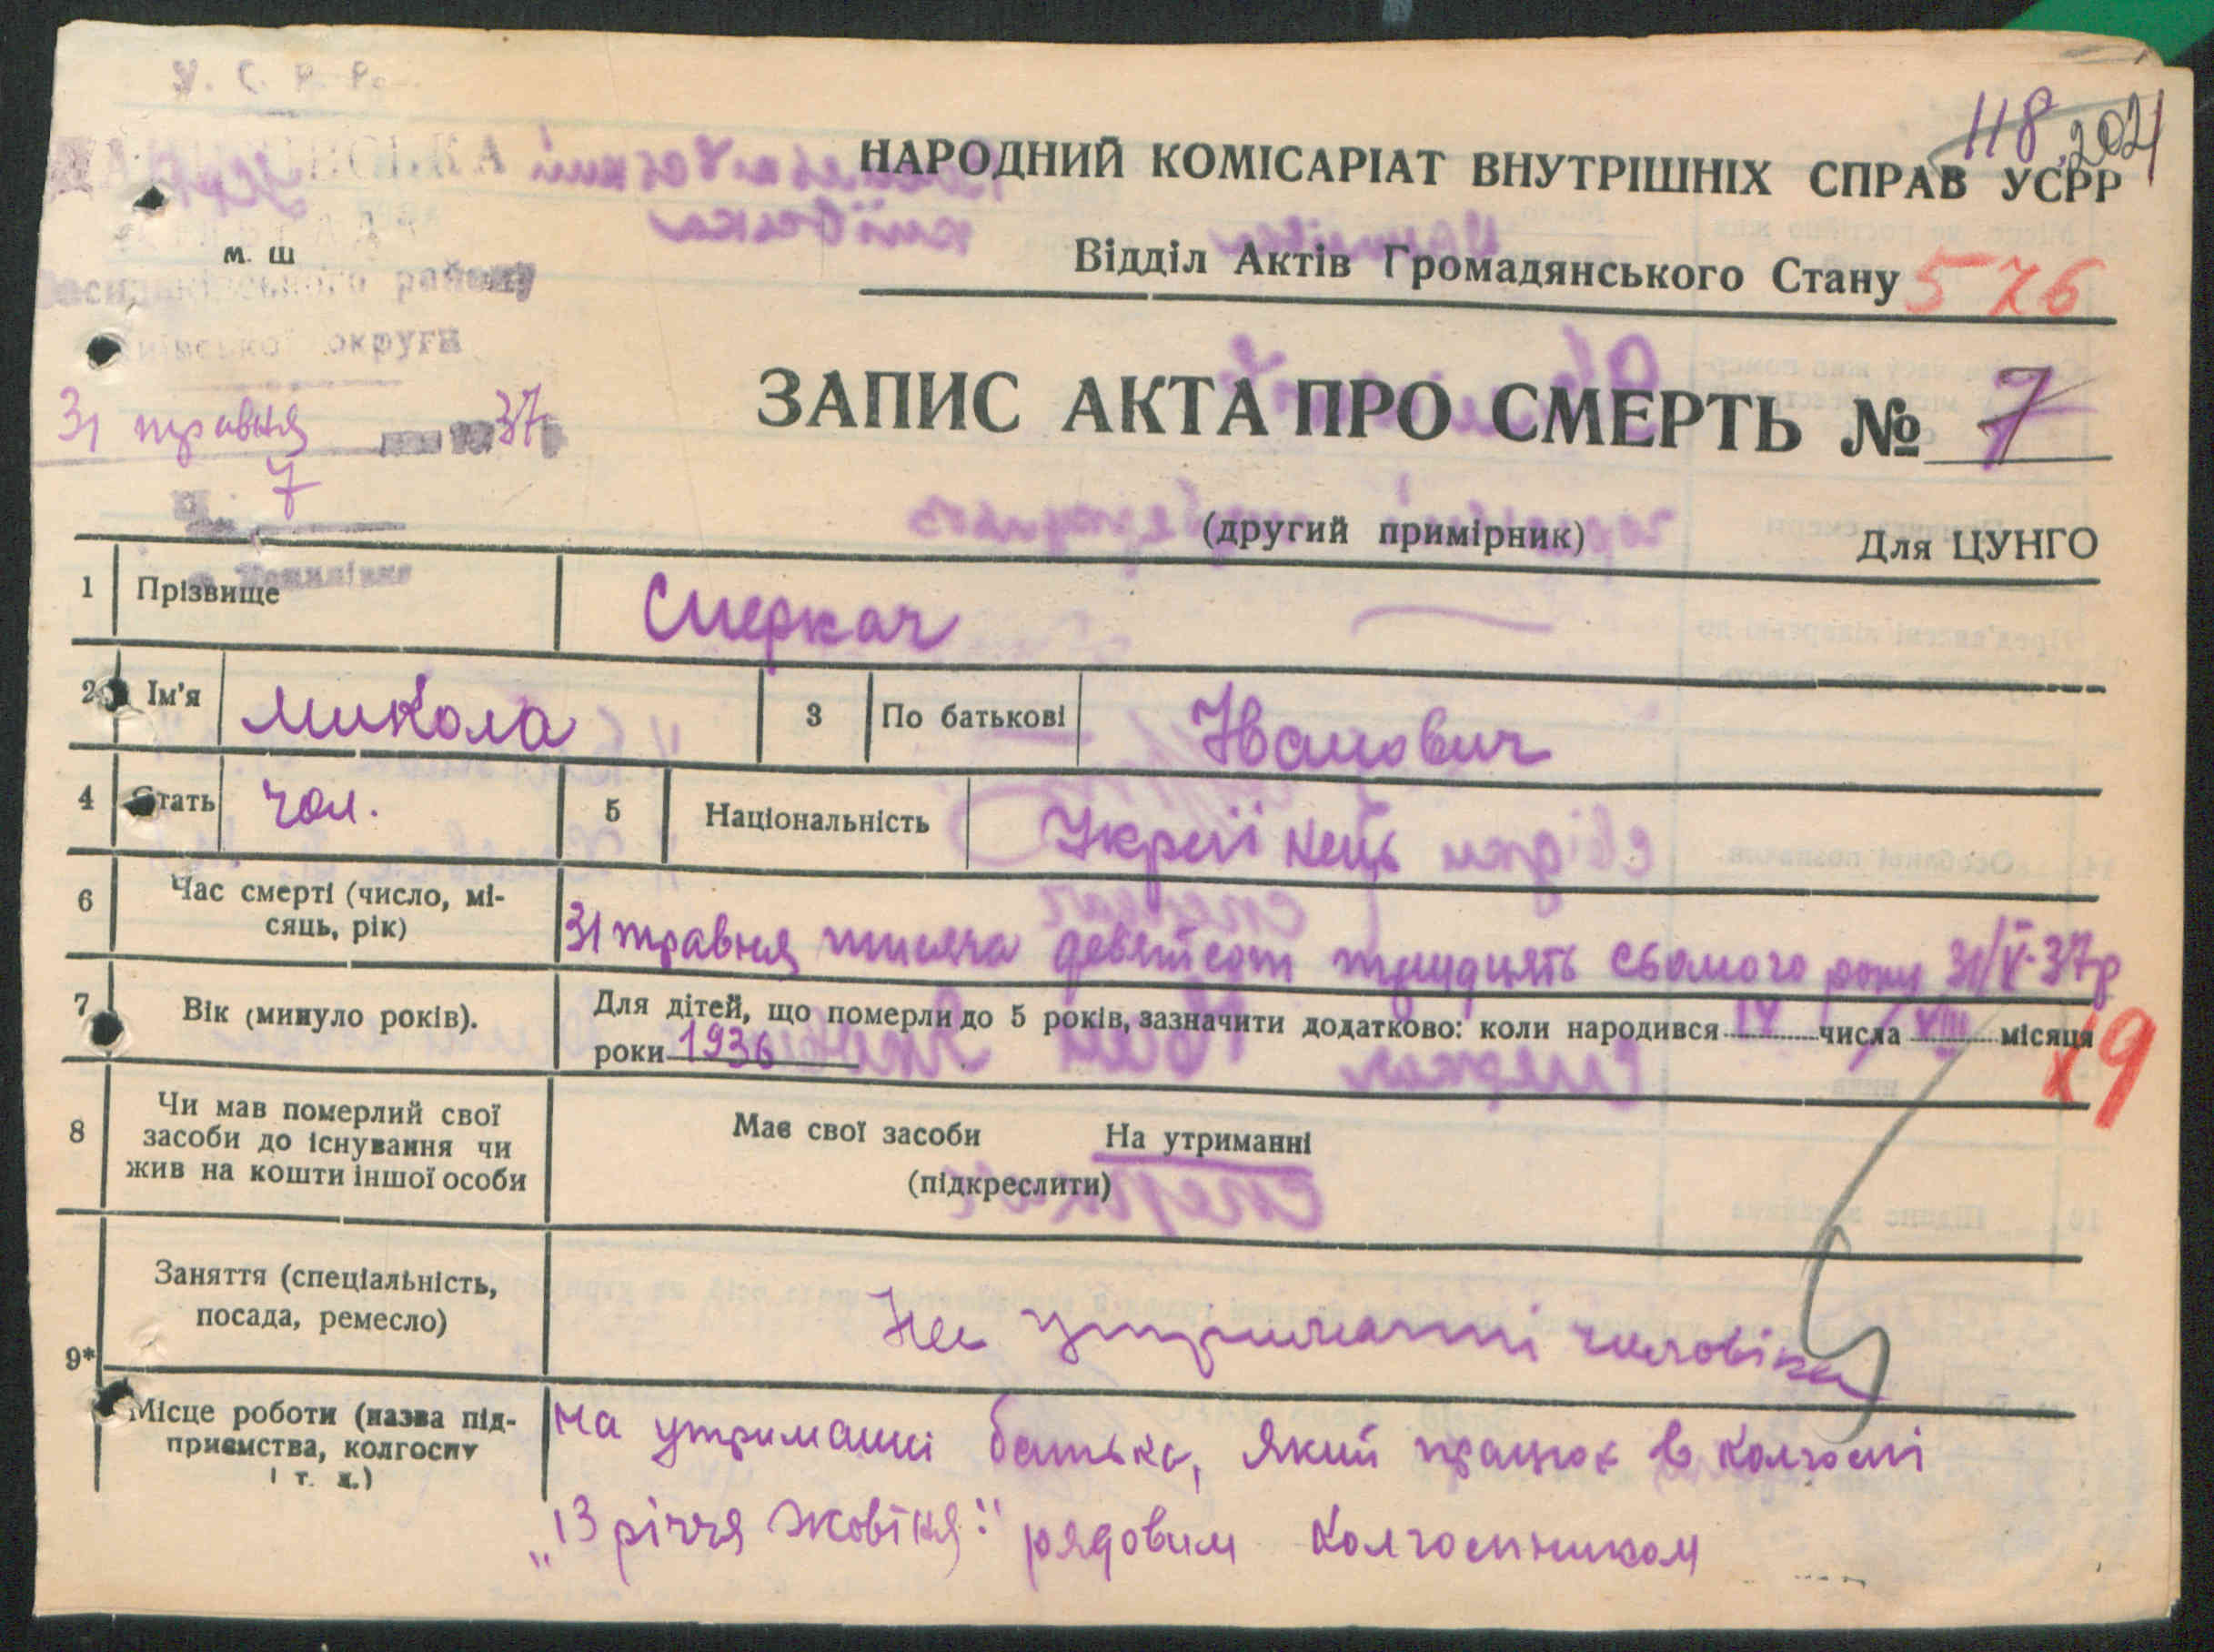 У. С. Р. Р.
118 204
НАРОДНИЙ КОМІСАРІАТ ВНУТРІШНІХ СПРАВ УСРР
м. ш
Відділ Актів Громадянського Стану 576
району
округи
31 травня 1937
7
ЗАПИС АКТА ПРО СМЕРТЬ № 7
(другий примірник)
Для ЦУНГО
1 Прізвище Смеркач
2 Ім'я Микола 3 По батькові Іванович
4 Стать чол. 5 Національність Українець
6 Час смерті (число, мі-
сяць, рік)
31 травня тисяча девятсот тридцять сьомого року 31/V-37р
7 Вік (минуло років).
Для дітей, що померли до 5 років, зазначити додатково: коли народився IV числа VIII місяця
роки 1936
х9
8 Чи мав померлий свої
засоби до існування чи
жив на кошти іншої особи
Має свої засоби На утриманні
(підкреслити)
9*
Заняття (спеціальність,
посада, ремесло)
На утриманні чоловіка
Місце роботи (назва під-
приємства, колгоспу
і т. д.)
на утриманні батька, який працює в колгоспі
„13 річчя жовтня" рядовим колгоспником